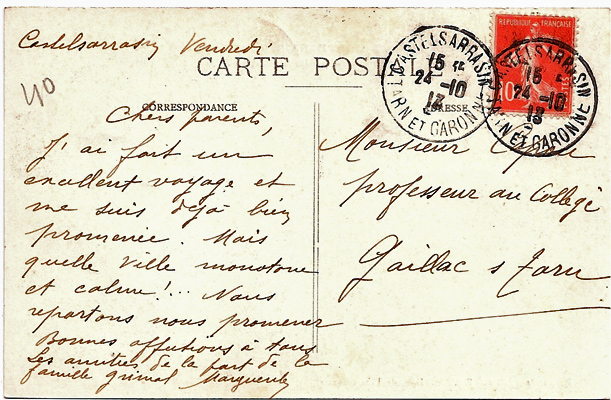 Castelsarrasin Vendredi
40
CARTE POSTALE
CORRESPONDANCE
ADRESSE
RÉPUBLIQUE FRANÇAISE
10
POSTES
CASTELSARRASIN
15
24-10
13
TARN ET GARONNE
CASTELSARRASIN
15
24-10
13
TARN ET GARONNE
Chers parents,
J'ai fait un
excellent voyage et
me suis déjà bien
promenée. Mais
quelle ville monotone
et calme!... Nous
repartons nous promener
Bonnes affections à tous
Les amitiés de la part de la
famille Grimal Marguerite
Monsieur
professeur au Collège
Gaillac s Tarn